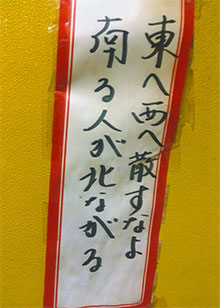 東へ西へ散すなよ
南る人が北ながる